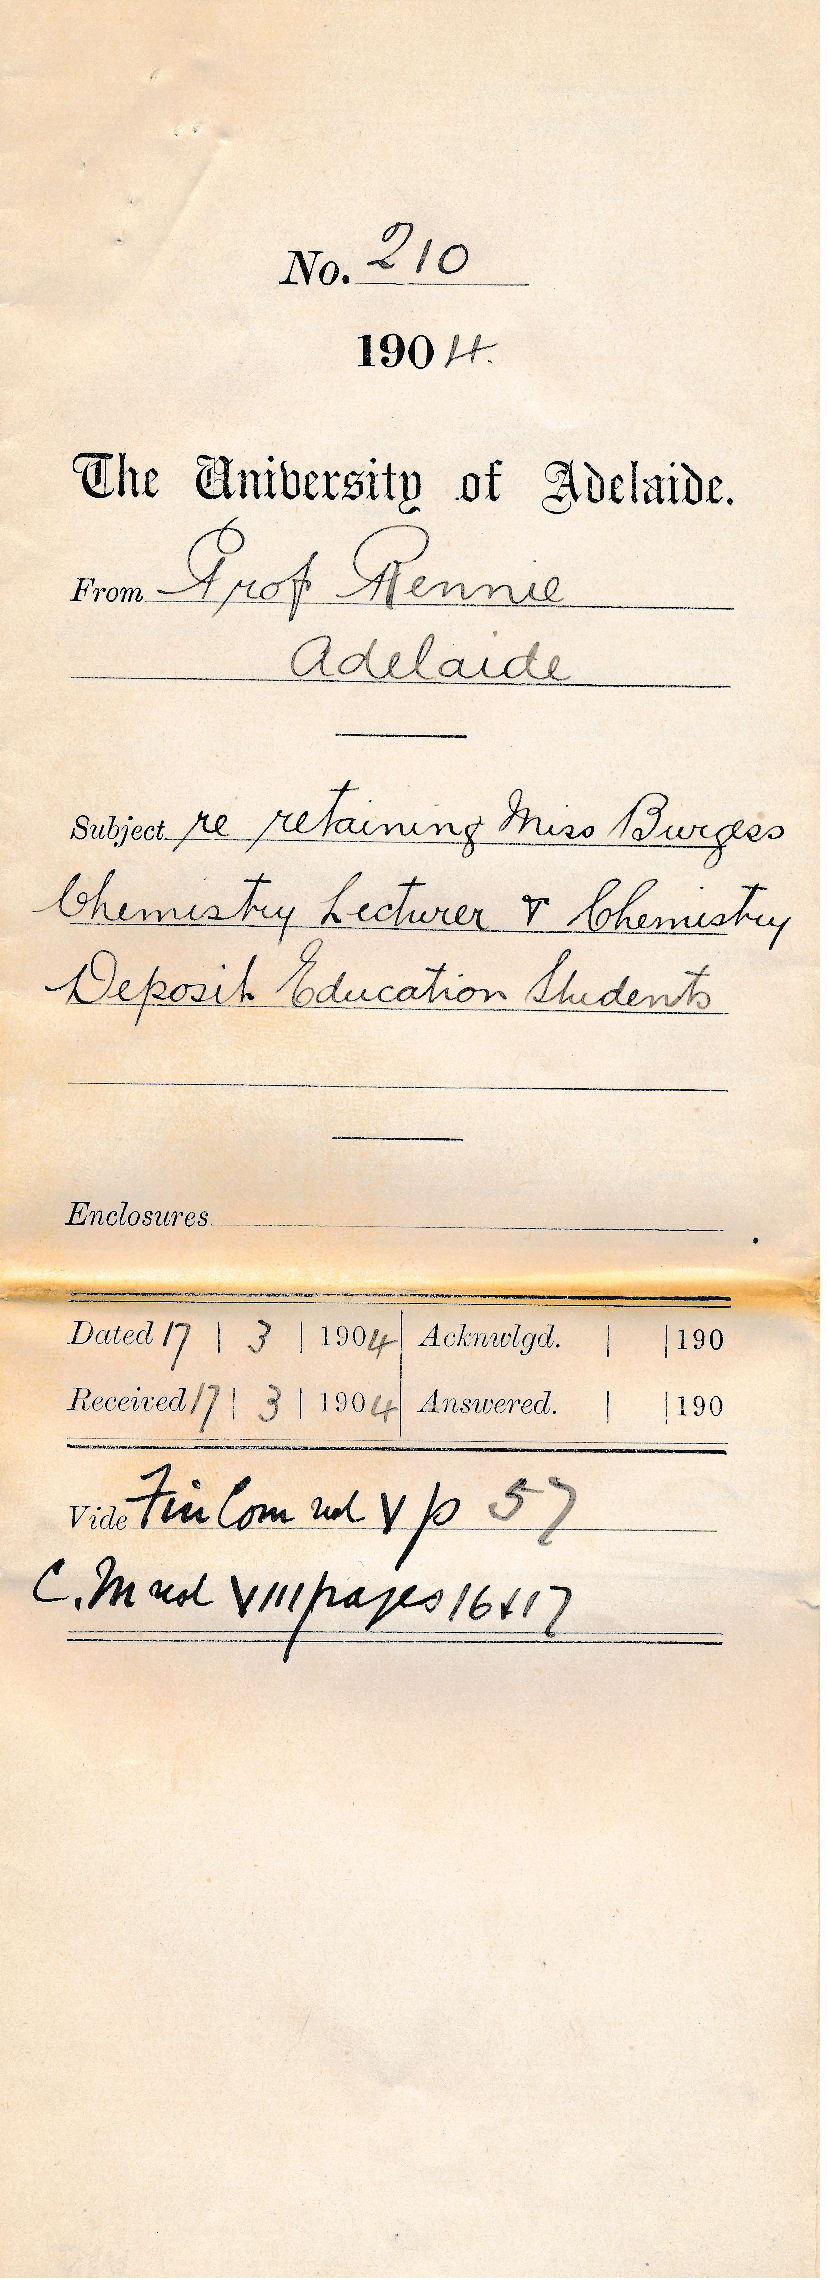 No. 210
1904.
The University of Adelaide.
From Prof Rennie
Adelaide
Subject re retaining Miss Burgess
Chemistry Lecturer & Chemistry
Deposit Education Students
Enclosures
Dated 17 | 3 | 1904 Acknwlgd. | | 190
Received 17 | 3 | 1904 Answered. | | 190
Vide Fin Com vol V p 57
C.M vol VIII pages 16 & 17